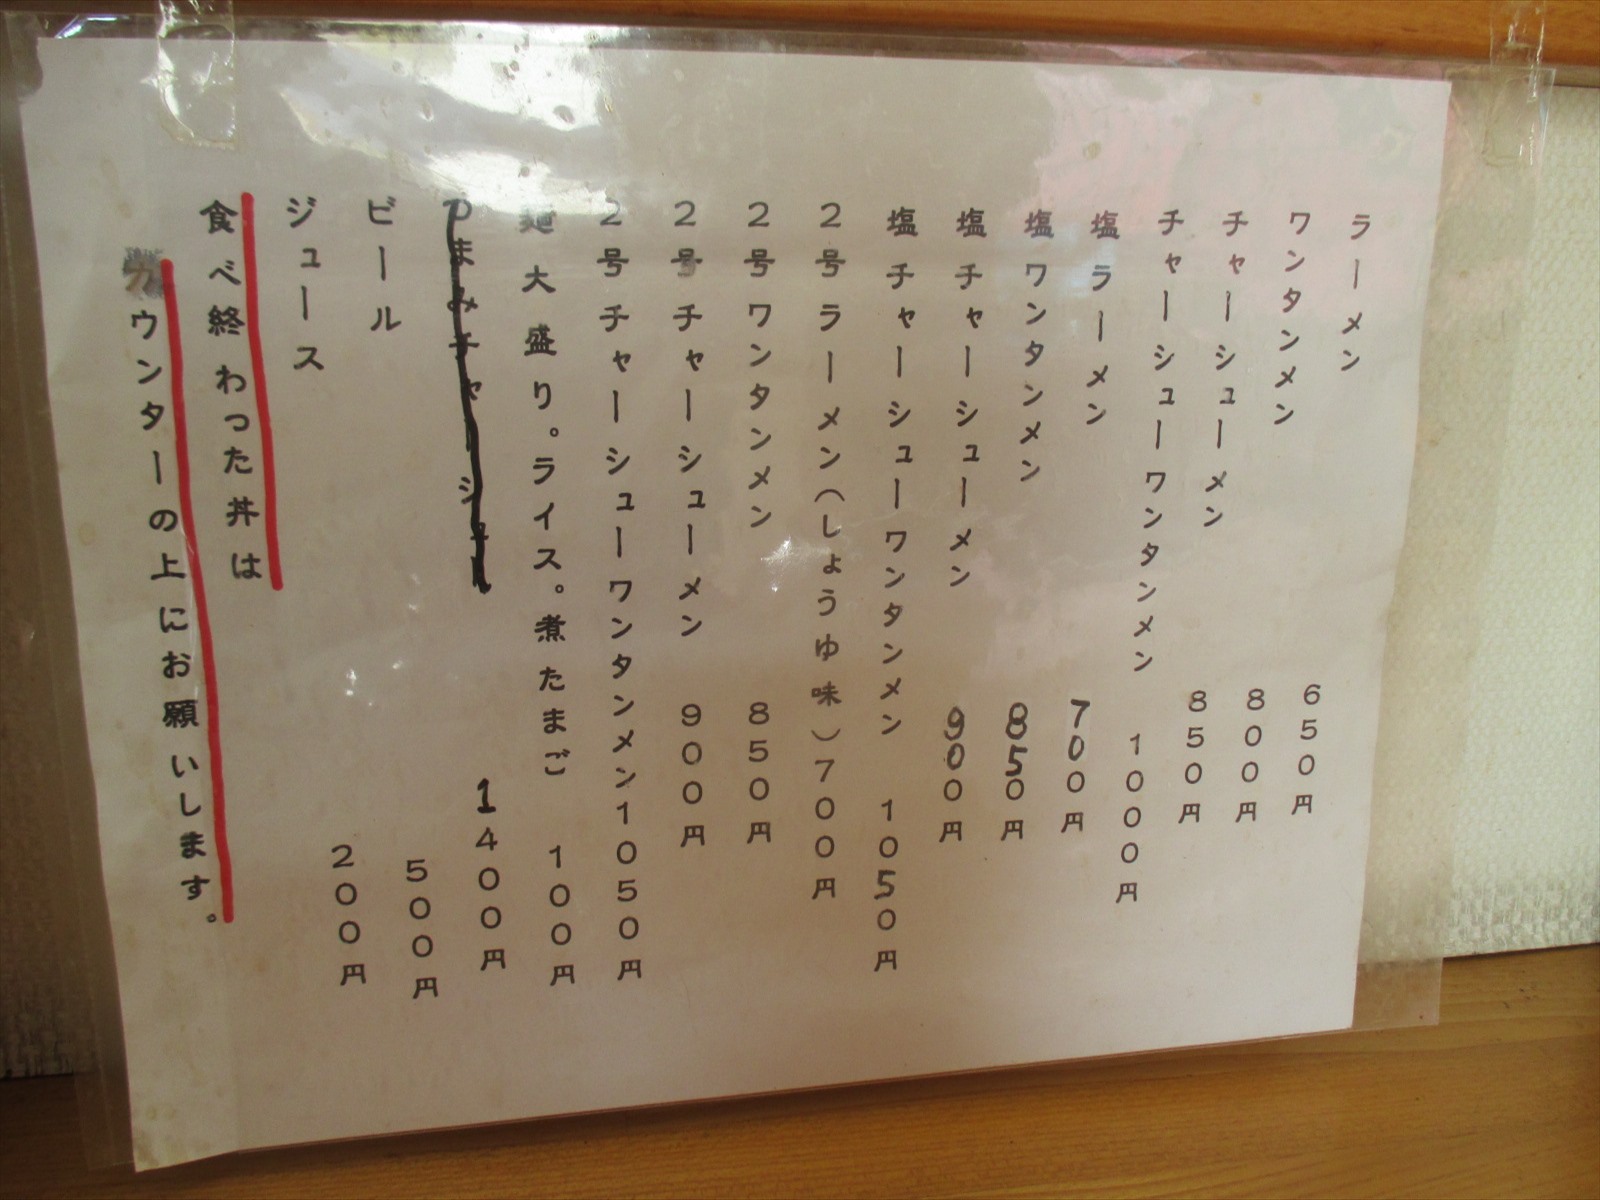 ラーメン 650円
ワンタンメン 800円
チャーシューメン 850円
チャーシューワンタンメン 1000円
塩ラーメン 700円
塩ワンタンメン 850円
塩チャーシューメン 900円
塩チャーシューワンタンメン 1050円
2号ラーメン(しょうゆ味)700円
2号ワンタンメン 850円
2号チャーシューメン 900円
2号チャーシューワンタンメン1050円
麺大盛り。ライス。煮たまご 100円
つまみチャーシュー 1400円
ビール 500円
ジュース 200円
食べ終わった丼は
カウンターの上にお願いします。